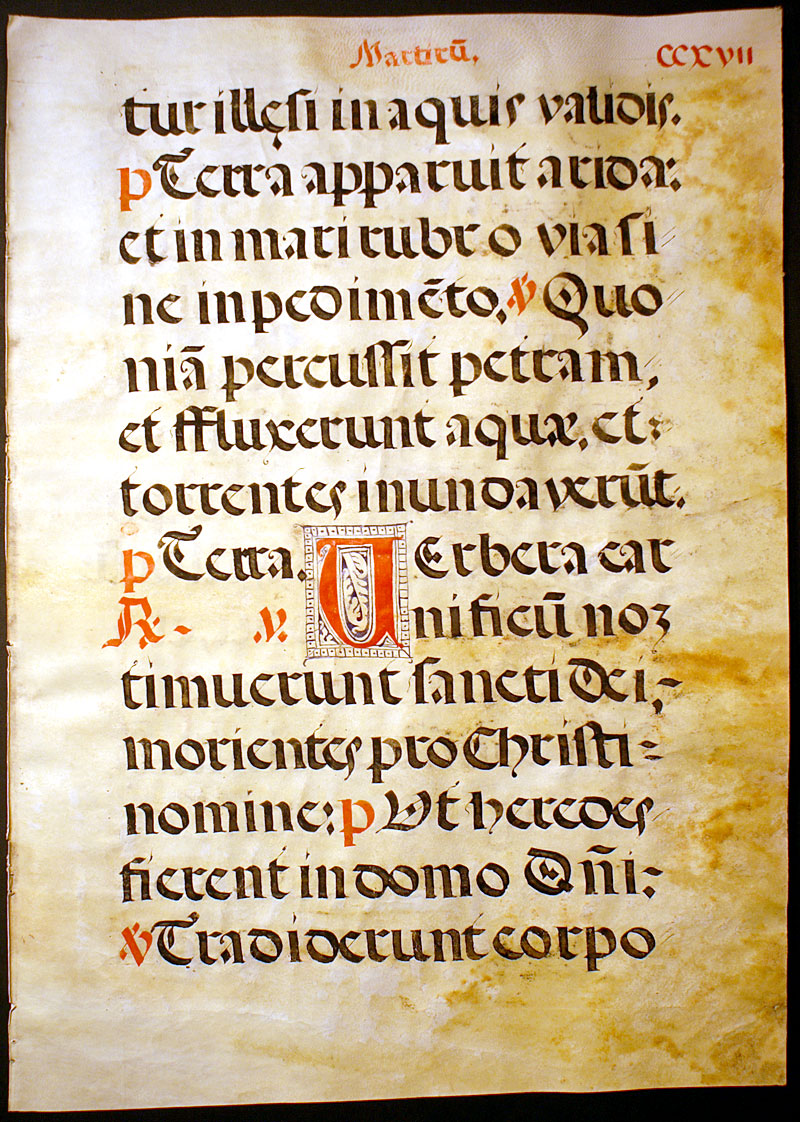 Martirū. CCXVII
tur illęsi in aquis validis.
p Terra apparuit arida:
et in mari rubro via si
ne inpedimēto, ℣ Quo
niā percussit petram,
et effluxerunt aquæ, et:
torrentes inundaverūt.
p Terra. VErbera car
℟. v. nificū noʒ
timuerunt sancti Dei,-
morientes pro Christi=
nomine: p Ut heredes
fierent in domo Dn̄i:
℣ Tradiderunt corpo